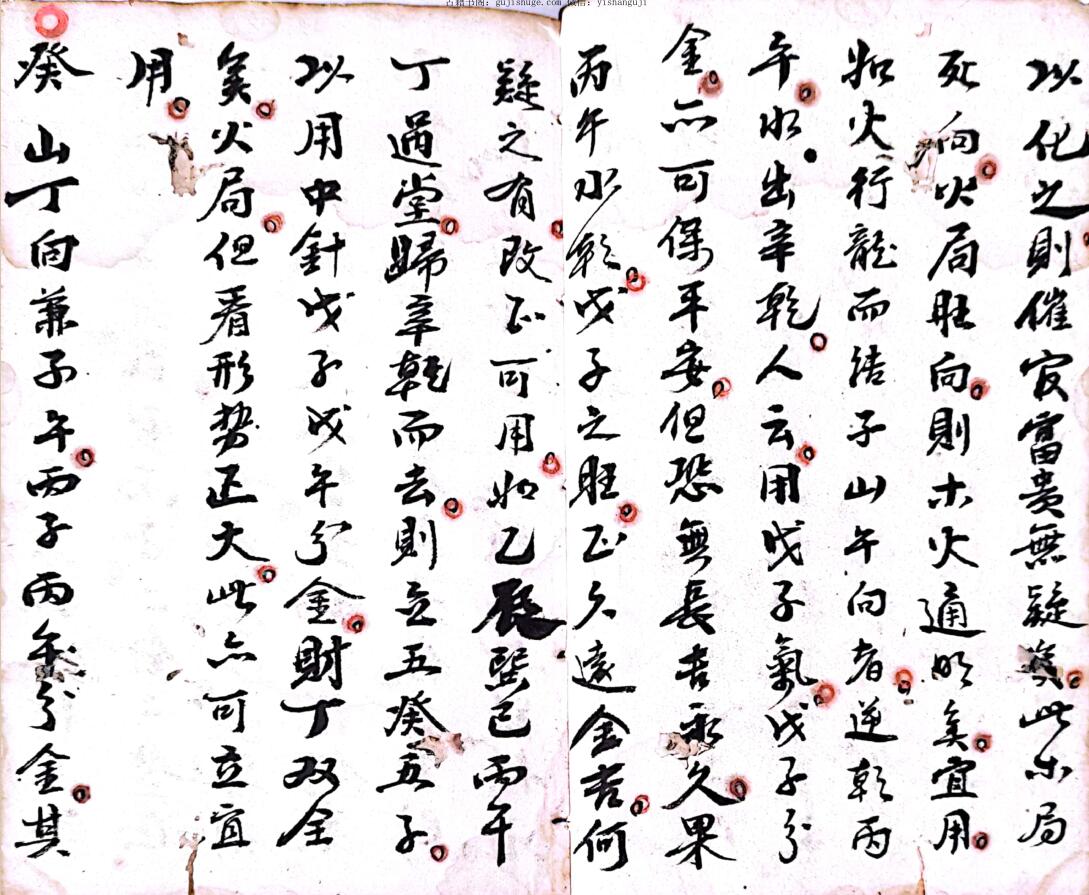 古籍书阁：gujishuge.com 微信：yishanguji
以化之則催官富貴無疑矣此木局
死向火局旺向則木火通明矣宜用
如火行龍而結子山午向者逆乾丙
午水出辛乾人云用戊子氣戊子分
金亦可保平安但恐無長吉永久果
丙午水乾戊子之旺正久遠全吉何
疑之有改正可用如乙辰巽巳丙午
丁過堂歸辛乾而去則立五癸五子
以用中針戊子戊午分金財丁双全
矣火局但看形势正大此亦可立宜
用
癸山丁向兼子午丙子丙午分金其